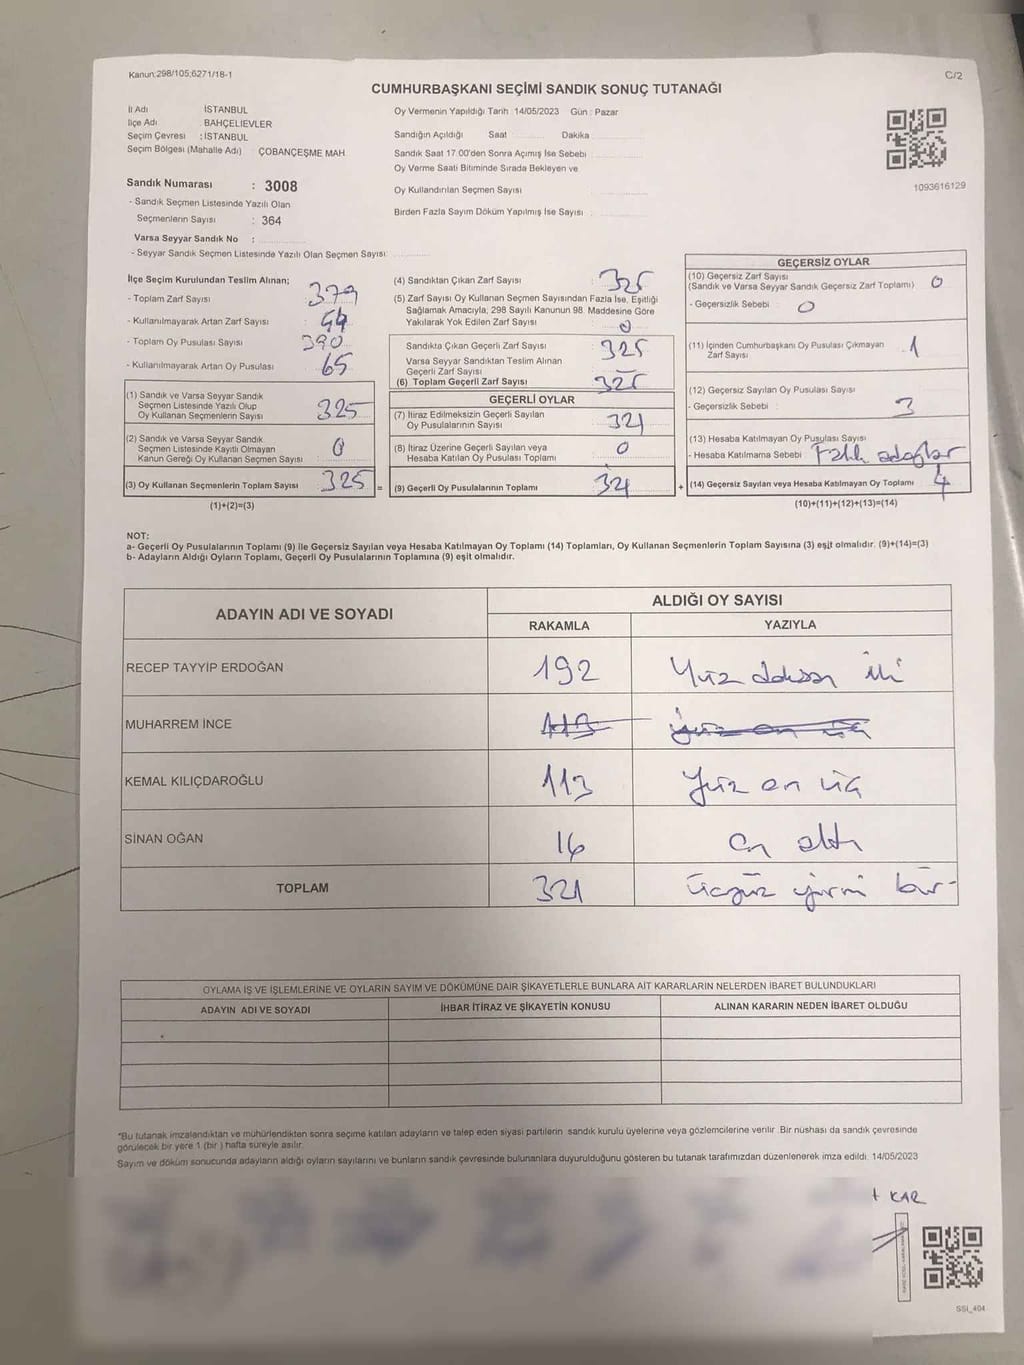 Kanun:298/105;6271/18-1
C/2
CUMHURBAŞKANI SEÇİMİ SANDIK SONUÇ TUTANAĞI
İl Adı İSTANBUL
İlçe Adı BAHÇELİEVLER
Seçim Çevresi : İSTANBUL
Seçim Bölgesi (Mahalle Adı) ÇOBANÇEŞME MAH.
Sandık Numarası : 3008
- Sandık Seçmen Listesinde Yazılı Olan
Seçmenlerin Sayısı : 364
Varsa Seyyar Sandık No :
- Seyyar Sandık Seçmen Listesinde Yazılı Olan Seçmen Sayısı:
Oy Vermenin Yapıldığı Tarih : 14/05/2023 Gün : Pazar
Sandığın Açıldığı Saat Dakika
Sandık Saat 17.00'den Sonra Açımış İse Sebebi
Oy Verme Saati Bitiminde Sırada Bekleyen ve
Oy Kullandırılan Seçmen Sayısı
Birden Fazla Sayım Döküm Yapılmış İse Sayısı :
1093616129
İlçe Seçim Kurulundan Teslim Alınan;
- Toplam Zarf Sayısı : 379
- Kullanılmayarak Artan Zarf Sayısı : 54
- Toplam Oy Pusulası Sayısı : 390
- Kullanılmayarak Artan Oy Pusulası : 65
(1) Sandık ve Varsa Seyyar Sandık
Seçmen Listesinde Yazılı Olup
Oy Kullanan Seçmenlerin Sayısı 325
(2) Sandık ve Varsa Seyyar Sandık
Seçmen Listesinde Kayıtlı Olmayan
Kanun Gereği Oy Kullanan Seçmen Sayısı 0
(3) Oy Kullanan Seçmenlerin Toplam Sayısı 325 =
(1)+(2)=(3)
(4) Sandıktan Çıkan Zarf Sayısı : 325
(5) Zarf Sayısı Oy Kullanan Seçmen Sayısından Fazla İse, Eşitliği
Sağlamak Amacıyla; 298 Sayılı Kanunun 98. Maddesine Göre
Yakılarak Yok Edilen Zarf Sayısı : 0
Sandıkta Çıkan Geçerli Zarf Sayısı : 325
Varsa Seyyar Sandıktan Teslim Alınan
Geçerli Zarf Sayısı : -
(6) Toplam Geçerli Zarf Sayısı : 325
GEÇERLİ OYLAR
(7) İtiraz Edilmeksizin Geçerli Sayılan
Oy Pusulalarının Sayısı : 321
(8) İtiraz Üzerine Geçerli Sayılan veya
Hesaba Katılan Oy Pusulası Toplamı : 0
(9) Geçerli Oy Pusulalarının Toplamı : 321 +
GEÇERSİZ OYLAR
(10) Geçersiz Zarf Sayısı
(Sandık ve Varsa Seyyar Sandık Geçersiz Zarf Toplamı) : 0
- Geçersizlik Sebebi : 0
(11) İçinden Cumhurbaşkanı Oy Pusulası Çıkmayan
Zarf Sayısı : 1
(12) Geçersiz Sayılan Oy Pusulası Sayısı
- Geçersizlik Sebebi : 3
(13) Hesaba Katılmayan Oy Pusulası Sayısı
- Hesaba Katılmama Sebebi :
(14) Geçersiz Sayılan veya Hesaba Katılmayan Oy Toplamı : 4
(10)+(11)+(12)+(13)=(14)
NOT:
a- Geçerli Oy Pusulalarının Toplamı (9) ile Geçersiz Sayılan veya Hesaba Katılmayan Oy Toplamı (14) Toplamları, Oy Kullanan Seçmenlerin Toplam Sayısına (3) eşit olmalıdır. (9)+(14)=(3)
b- Adayların Aldığı Oyların Toplamı, Geçerli Oy Pusulalarının Toplamına (9) eşit olmalıdır.
ADAYIN ADI VE SOYADI ALDIĞI OY SAYISI
RAKAMLA YAZIYLA
RECEP TAYYİP ERDOĞAN 192 Yüz doksan iki
MUHARREM İNCE 113 yüz on üç
KEMAL KILIÇDAROĞLU 113 yüz on üç
SİNAN OĞAN 16 on altı
TOPLAM 321 üçyüz yirmi bir
OYLAMA İŞ VE İŞLEMLERİNE VE OYLARIN SAYIM VE DÖKÜMÜNE DAİR ŞİKAYETLERLE BUNLARA AİT KARARLARIN NELERDEN İBARET BULUNDUKLARI
ADAYIN ADI VE SOYADI İHBAR İTİRAZ VE ŞİKAYETİN KONUSU ALINAN KARARIN NEDEN İBARET OLDUĞU
*Bu tutanak imzalandıktan ve mühürlendikten sonra seçime katılan adayların ve talep eden siyasi partilerin sandık kurulu üyelerine veya gözlemcilerine verilir. Bir nüshası da sandık çevresinde
görülecek bir yere 1 (bir ) hafta süreyle asılır.
Sayım ve döküm sonucunda adayların aldığı oyların sayılarını ve bunların sandık çevresinde bulunanlara duyurulduğunu gösteren bu tutanak tarafımızdan düzenlenerek imza edildi. 14/05/2023
KAR
SSI_404